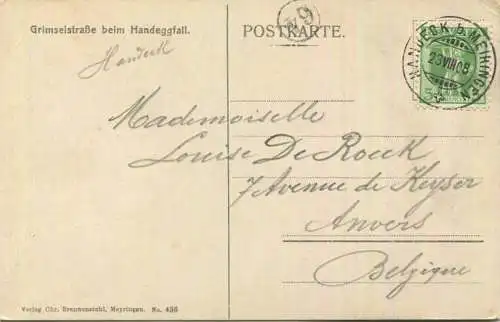 Grimselstraße beim Handeggfall.
POSTKARTE.
Handeck
HANDECK b. MEIRINGEN
23 VII 08
5
Mademoiselle
Louise De Roeck
7 Avenue de Keyser
Anvers
Belgique
Verlag Chr. Brennenstuhl, Meyringen. No. 456